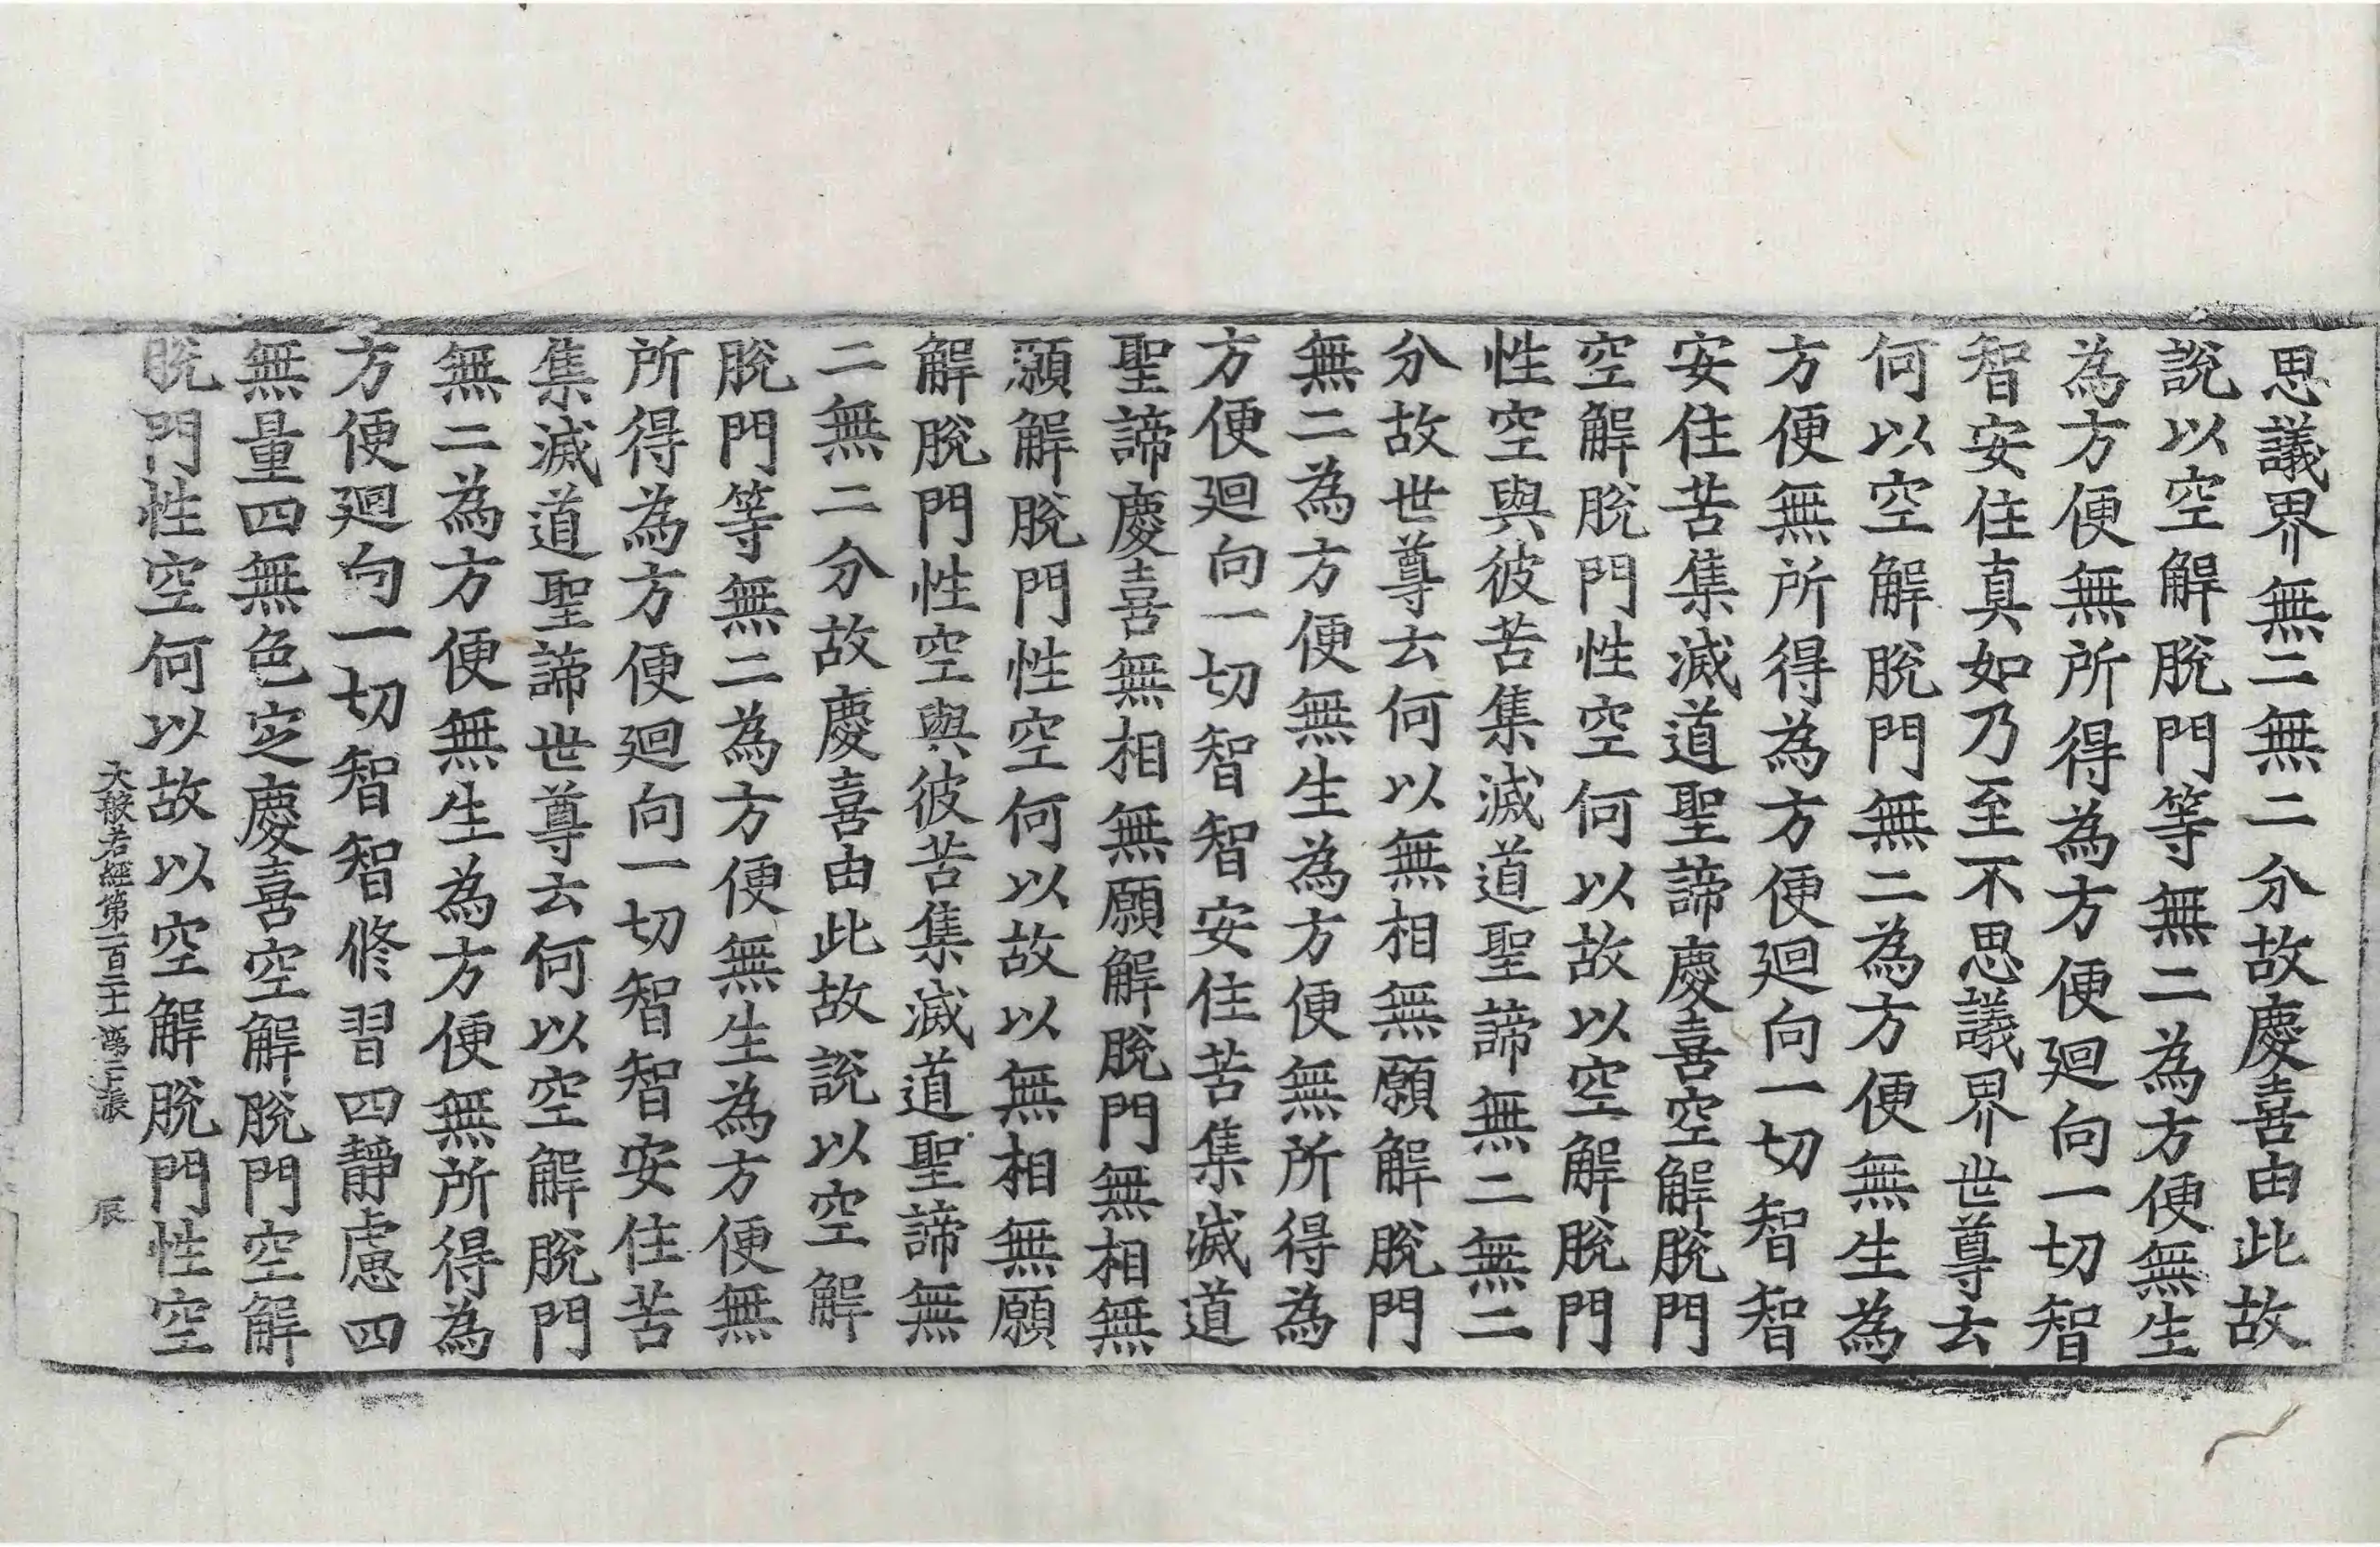 思議界無二無二分故慶喜由此故
說以空解脫門等無二為方便無生
為方便無所得為方便迴向一切智
智安住真如乃至不思議界世尊云
何以空解脫門無二為方便無生為
方便無所得為方便迴向一切智智
安住苦集滅道聖諦慶喜空解脫門
空解脫門性空何以故以空解脫門
性空與彼苦集滅道聖諦無二無二
分故世尊云何以無相無願解脫門
無二為方便無生為方便無所得為
方便迴向一切智智安住苦集滅道
聖諦慶喜無相無願解脫門無相無
願解脫門性空何以故以無相無願
解脫門性空與彼苦集滅道聖諦無
二無二分故慶喜由此故說以空解
脫門等無二為方便無生為方便無
所得為方便迴向一切智智安住苦
集滅道聖諦世尊云何以空解脫門
無二為方便無生為方便無所得為
方便迴向一切智智修習四靜慮四
無量四無色定慶喜空解脫門空解
脫門性空何以故以空解脫門性空
大般若經第一百二十 張 辰